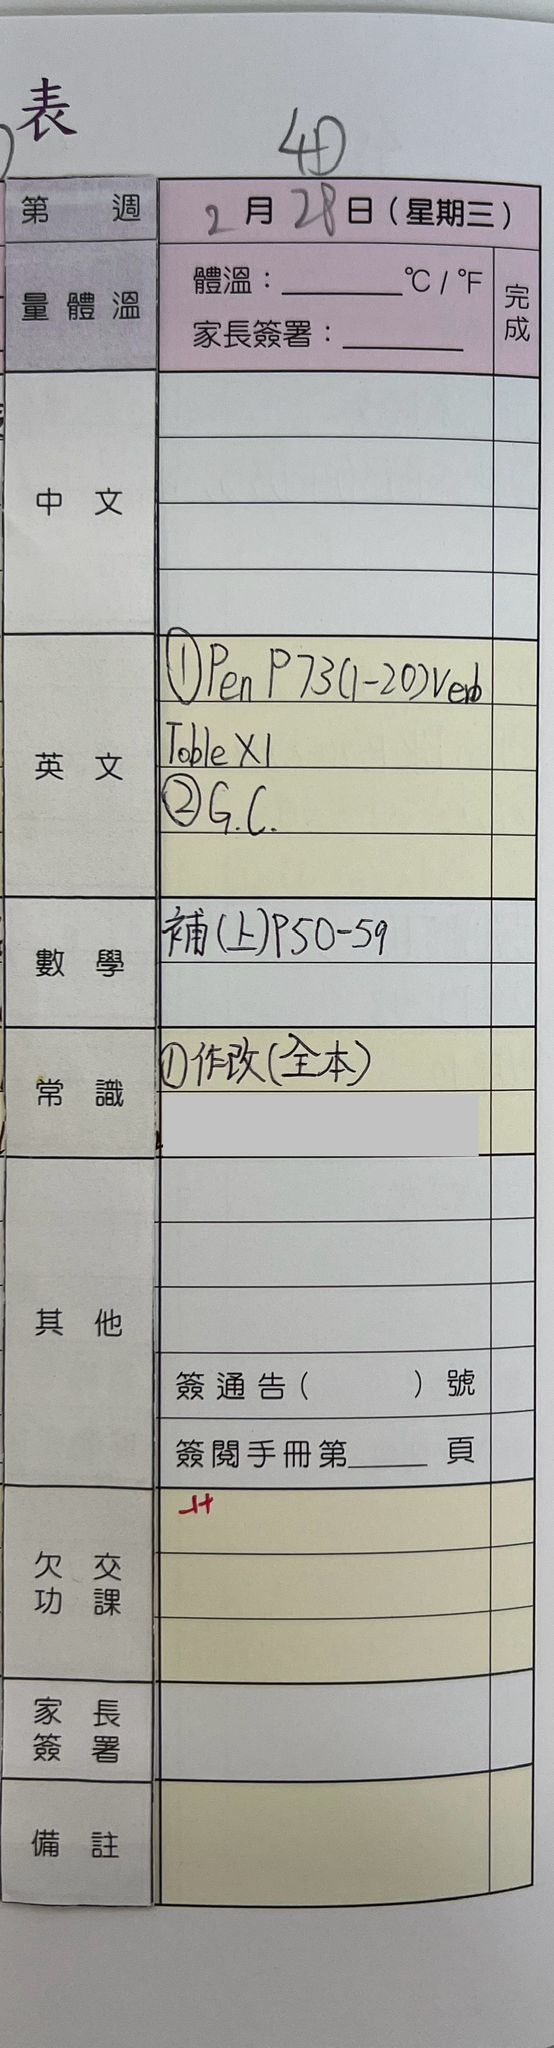 表
4D
第 週
2月28日(星期三)
量體溫
體溫：______°C / °F
家長簽署：______
完成
中文
英文
①Pen P73(1-20)Verb
Table X1
②G.C.
數學
補(上)P50-59
常識
①作改(全本)
其他
簽通告( )號
簽閱手冊第____頁
欠交功課
家長簽署
備註